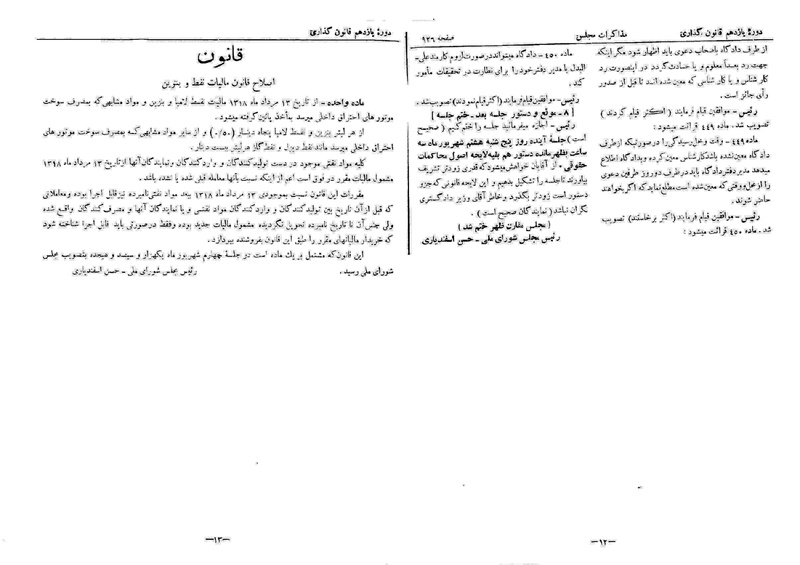 دورهٔ یازدهم قانون گذاری
مذاکرات مجلس
صفحه ۹۳۶
از طرف دادگاه باصحاب دعوی باید اظهار شود مگر اینکه
جهت رد بعداً معلوم و یا حسادث گردد در اینصورت رد
کارشناس و یا کارشناسی که معین شده است تا قبل از صدور
رأی جائز است.
رئیس - موافقین قیام فرمایند (اکثر قیام کردند)
تصویب شد. ماده ۴۴۹ قرائت میشود:
ماده ۴۴۹ - وقت و محل رسیدگی را در صورتیکه از طرف
دادگاه معین شده باشد کارشناس معین کرده و بدادگاه اطلاع
میدهد مدیر دفتر دادگاه باید در ظرف دو روز طرفین دعوی
را از محل و وقتی که معین شده است مطلع نماید که اگر بخواهند
حاضر شوند.
رئیس - موافقین قیام فرمایند (اکثر برخاستند) تصویب
شد. ماده ۴۵۰ قرائت میشود:
ماده ۴۵۰ - دادگاه میتواند در صورت لزوم کارمند علی
البدل یا مدیر دفتر خود را برای نظارت در تحقیقات مأمور
کند.
رئیس - موافقین قیام فرمایند (اکثر قیام نمودند) تصویب شد.
[۸ - موقع و دستور جلسه بعد - ختم جلسه]
رئیس - اجازه میفرمائید جلسه را ختم کنیم (صحیح
است) جلسهٔ آینده روز پنج شنبه هشتم شهریور ماه سه
ساعت بظهر مانده دستور هم بقیه لایحه اصول محاکمات
حقوقی. از آقایان خواهش میشود که قدری زودتر تشریف
بیاورند تا جلسه را تشکیل بدهیم و این لایحه قانونی که جزو
دستور است زودتر بگذرد و خاطر آقای وزیر دادگستری
نگران نباشد (نمایندگان صحیح است).
(مجلس مقارن ظهر ختم شد)
رئیس مجلس شورای ملی - حسن اسفندیاری
-۱۲-
دورهٔ یازدهم قانون گذاری
قانون
اصلاح قانون مالیات نفط و بنزین
ماده واحده - از تاریخ ۱۳ مرداد ماه ۱۳۱۸ مالیات نفط لامپا و بنزین و مواد مشابهی که بمصرف سوخت
موتور های احتراق داخلی میرسد بمآخذ پائین گرفته میشود.
از هر لیتر بنزین و نفط لامپا پنجاه دینار (۰/۵۰) و از سایر مواد مشابهی که بمصرف سوخت موتور های
احتراق داخلی میرسد مانند نفط دیزل و نفط گاز هر لیتر بیست دینار.
کلیه مواد نفتی موجود در دست تولید کنندگان و وارد کنندگان و نمایندگان آنها از تاریخ ۱۳ مرداد ماه ۱۳۱۸
مشمول مالیات مقرر در فوق است اعم از اینکه نسبت بآنها معامله قبلی شده یا نشده باشد.
مقررات این قانون نسبت بموجودی ۱۳ مرداد ماه ۱۳۱۸ ببعد مواد نفتی نامبرده نیز قابل اجرا بوده و معاملاتی
که قبل از آن تاریخ بین تولید کنندگان و وارد کنندگان مواد نفتی و یا نمایندگان آنها و مصرف کنندگان واقع شده
ولی جنس آن تا تاریخ نامبرده تحویل نگردیده مشمول مالیات جدید بوده و فقط در صورتی باید قابل اجرا شناخته شود
که خریدار مالیاتهای مقرر را طبق این قانون بفروشنده بپردازد.
این قانون که مشتمل بر یك ماده است در جلسهٔ چهارم شهریور ماه یکهزار و سیصد و هیجده بتصویب مجلس
شورای ملی رسید.
رئیس مجلس شورای ملی - حسن اسفندیاری
-۱۳-